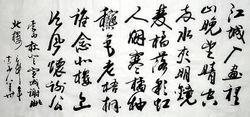 江城如画裡
山晚望晴空
两水夹明镜
双桥落彩虹
人烟寒橘柚
秋色老梧桐
谁念北楼上
临风怀谢公
李白秋登宣城谢朓
北楼